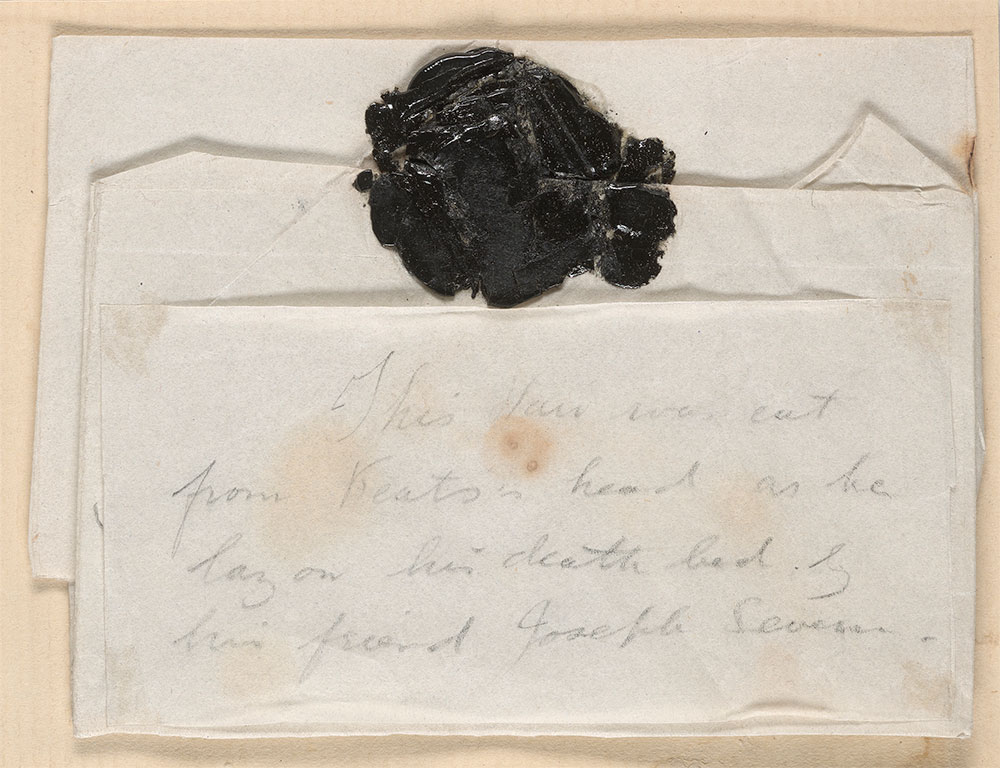 This Hair was cut
from Keats's head as he
lay on his death bed. by
his friend Joseph Severn.